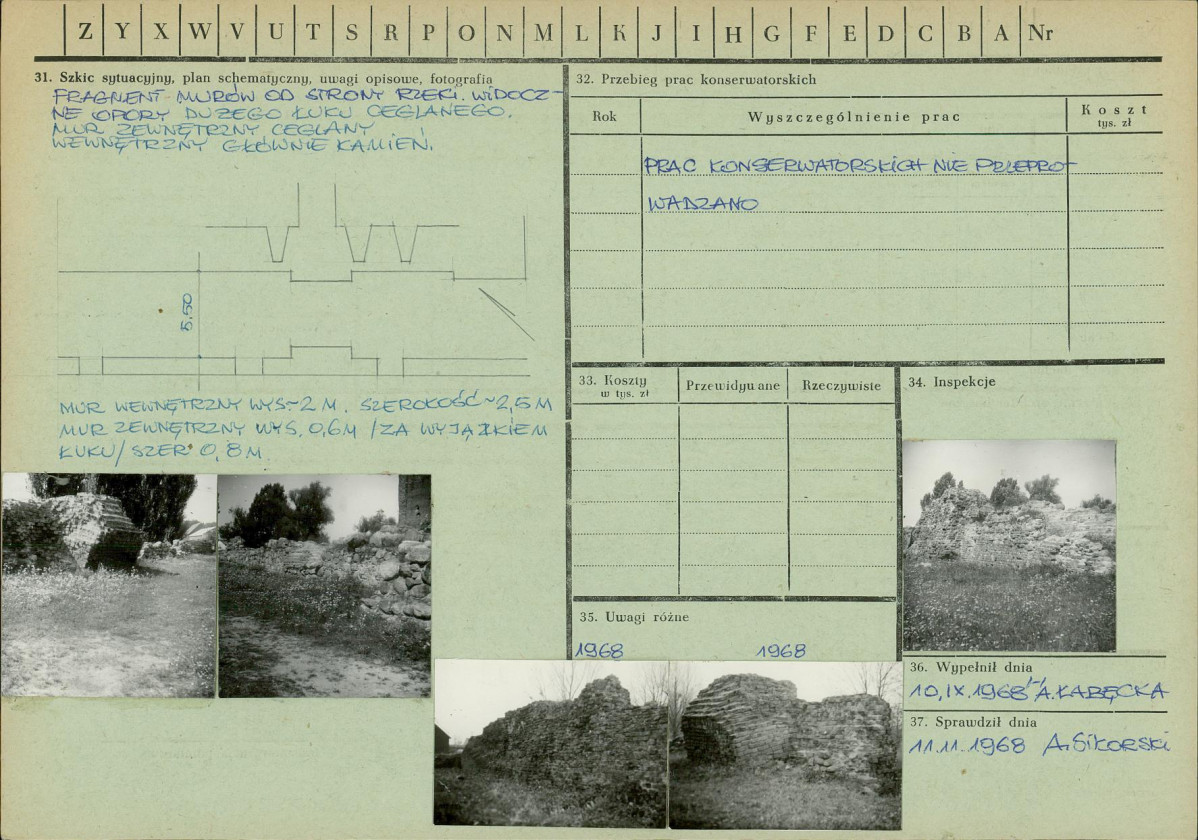 Z Y X W V U T S R P O N M L K J I H G F E D C B A Nr
31. Szkic sytuacyjny, plan schematyczny, uwagi opisowe, fotografia
FRAGMENT MURÓW OD STRONY RZEKI. WIDOCZ-
NE OPORY DUŻEGO ŁUKU CEGLANEGO.
MUR ZEWNĘTRZNY CEGLANY,
WEWNĘTRZNY GŁÓWNIE KAMIEŃ.
5,50
MUR WEWNĘTRZNY WYS~2 M. SZEROKOŚĆ ~2,5 M
MUR ZEWNĘTRZNY WYS. 0,6M /ZA WYJĄTKIEM
ŁUKU/ SZER 0,8 M.
32. Przebieg prac konserwatorskich
Rok
Wyszczególnienie prac
Koszt
tys. zł
PRAC KONSERWATORSKICH NIE PRZEPRO-
WADZANO
33. Koszty
w tys. zł
Przewidywane
Rzeczywiste
34. Inspekcje
35. Uwagi różne
1968 1968
36. Wypełnił dnia
10.IX.1968 A.ŁABĘCKA
37. Sprawdził dnia
11.11.1968 A.Sikorski